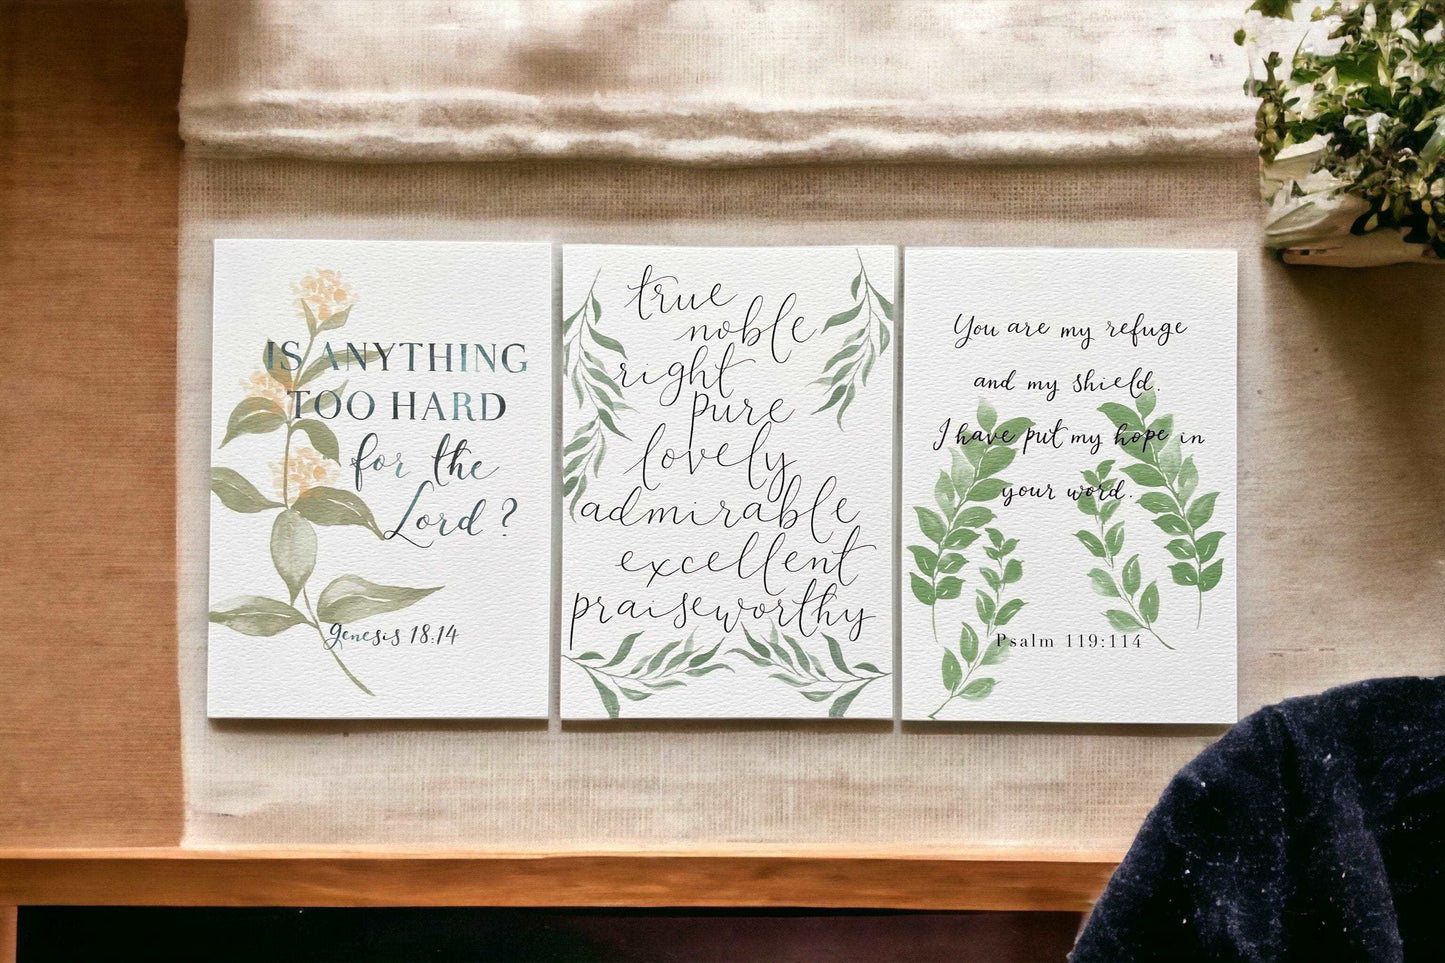 IS ANYTHING
TOO HARD
for the
Lord?
Genesis 18:14
true
noble
right
pure
lovely
admirable
excellent
praiseworthy
You are my refuge
and my shield.
I have put my hope in
your word.
Psalm 119:114